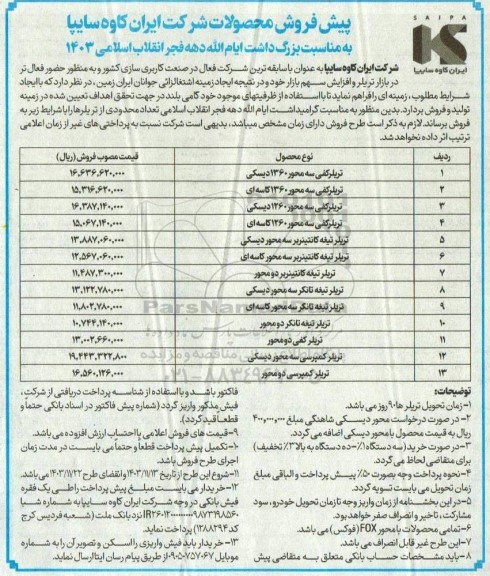 پیش فروش محصولات شرکت ایران کاوه سایپا
به مناسبت بزرگداشت ایام الله دهه فجر انقلاب اسلامی ۱۴۰۳
SAIPA
ایران کاوه سایپا
شرکت ایران کاوه سایپا به عنوان باسابقه ترین شرکت فعال در صنعت کاربری سازی کشور و به منظور حضور فعال تر
در بازار تریلر و افزایش سهم بازار خود و در نتیجه ایجاد زمینه اشتغالزائی جوانان ایران زمین، در نظر دارد که با ایجاد
شرایط مطلوب، زمینه ای را فراهم نماید تا با استفاده از ظرفیتهای موجود خود گامی بلند در جهت تحقق اهداف تعیین شده در زمینه
تولید و فروش بردارد. بدین منظور به مناسبت گرامیداشت ایام الله دهه فجر انقلاب اسلامی تعداد محدودی از تریلرها را با شرایط زیر به
فروش برساند. لازم به ذکر است طرح فروش دارای زمان مشخص میباشد، بدیهی است شرکت نسبت به پرداختی های غیر از زمان اعلامی
ترتیب اثر داده نخواهد شد.
ردیف نوع محصول قیمت مصوب فروش (ریال)
۱ تریلر کفی سه محور ۱۳۶۰ دیسکی ۱۶,۶۳۶,۶۲۰,۰۰۰
۲ تریلر کفی سه محور ۱۳۶۰ کاسه ای ۱۵,۳۱۶,۶۲۰,۰۰۰
۳ تریلر کفی سه محور ۱۲۶۰ دیسکی ۱۶,۳۸۷,۱۴۰,۰۰۰
۴ تریلر کفی سه محور ۱۲۶۰ کاسه ای ۱۵,۰۶۷,۱۴۰,۰۰۰
۵ تریلر تیغه کانتینربر سه محور دیسکی ۱۳,۸۸۷,۰۶۰,۰۰۰
۶ تریلر تیغه کانتینربر سه محور کاسه ای ۱۲,۵۶۷,۰۶۰,۰۰۰
۷ تریلر تیغه کانتینربر دو محور ۱۱,۴۸۷,۳۰۰,۰۰۰
۸ تریلر تیغه تانکر سه محور دیسکی ۱۳,۱۲۲,۷۸۰,۰۰۰
۹ تریلر تیغه تانکر سه محور کاسه ای ۱۱,۸۰۲,۷۸۰,۰۰۰
۱۰ تریلر تیغه تانکر دو محور ۱۰,۷۴۴,۱۴۰,۰۰۰
۱۱ تریلر کفی دو محور ۱۳,۰۰۲,۶۶۰,۰۰۰
۱۲ تریلر کمپرسی سه محور دیسکی ۱۹,۴۴۳,۳۲۲,۸۰۰
۱۳ تریلر کمپرسی دو محور ۱۶,۵۶۰,۱۲۶,۰۰۰
توضیحات:
۱- زمان تحویل تریلر ها ۹۰ روز می باشد.
۲- در صورت درخواست محور دیسکی شاهنگی مبلغ ۴۰۰,۰۰۰,۰۰۰
ریال به قیمت محصول با محور دیسکی اضافه می گردد.
۳- در صورت خرید (سه دستگاه ۱٪ – ده دستگاه به بالا ۳٪ تخفیف)
برای متقاضی لحاظ می گردد.
۴- نحوه پرداخت وجه بصورت ۵۰٪ پیش پرداخت و الباقی مبلغ
زمان تحویل می بایست تسویه گردد.
۵- در این بخشنامه از زمان واریز وجه تا زمان تحویل خودرو، سود
مشارکت، تاخیر و انصراف صفر خواهد بود.
۶- تمامی محصولات با محور FOX (فوکس) می باشد.
۷- این طرح غیر قابل انصراف می باشد.
۸- باید مشخصات حساب بانکی متعلق به متقاضی پیش
فاکتور باشد و با استفاده از شناسه پرداخت دریافتی از شرکت،
فیش مذکور واریز گردد (شماره پیش فاکتور در اسناد بانکی حتما و
قطعا قید گردد).
۹- قیمت های فروش اعلامی با احتساب ارزش افزوده می باشد.
۱۰- تکمیل پیش پرداخت قطعا و حتما می بایست در مدت زمان
اجرای طرح فروش باشد.
۱۱- شروع این طرح از تاریخ ۱۴۰۳/۱۱/۱۳ و انقضای طرح ۱۴۰۳/۱۱/۲۲ می باشد.
۱۲- خریدار می بایست مبلغ پیش پرداخت را طی یک فقره
فیش بانکی در وجه شرکت ایران کاوه سایپا به شماره شبا
نزد بانک ملت (شعبه فردیس کرج
کد ۱۲۸۸۲۹۴) پرداخت نماید.
۱۳- خریدار باید فیش واریزی را اسکن و تصویر آن را به شماره
موبایل ۰۹۰۵۰۷۵۷۰۶۷ از طریق پیام رسان ایتا ارسال نماید.